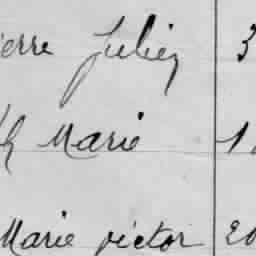 ierre Julien 3
h Marie 1
Marie victor 20